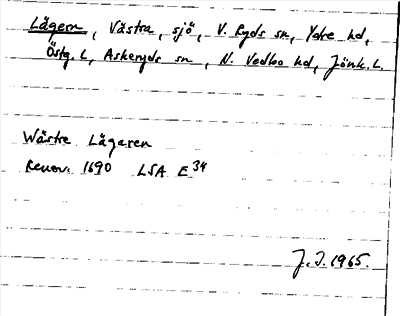 Lägern, Västra, sjö, V. Ryds sn, Ydre hd,
Östg. l, Askeryds sn, N. Vedbo hd, Jönk. l.
Wästre Lägaren
Renov. 1690 LSA E 34
J. I. 1965.